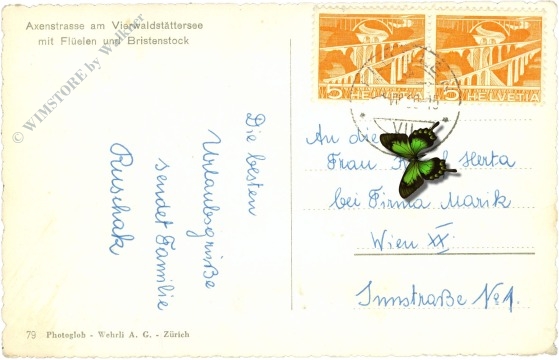 Axenstrasse am Vierwaldstättersee
mit Flüelen und Bristenstock
© WIMSTORE by Walkner
Die besten
Urlaubsgrüße
sendet Familie
Ruschak
5 HELVETIA 5 HELVETIA
VII
An die
Frau Herta
bei Firma Marik
Wien XX.
Innstraße No 1.
79 Photogloh - Wehrli A. G. - Zürich